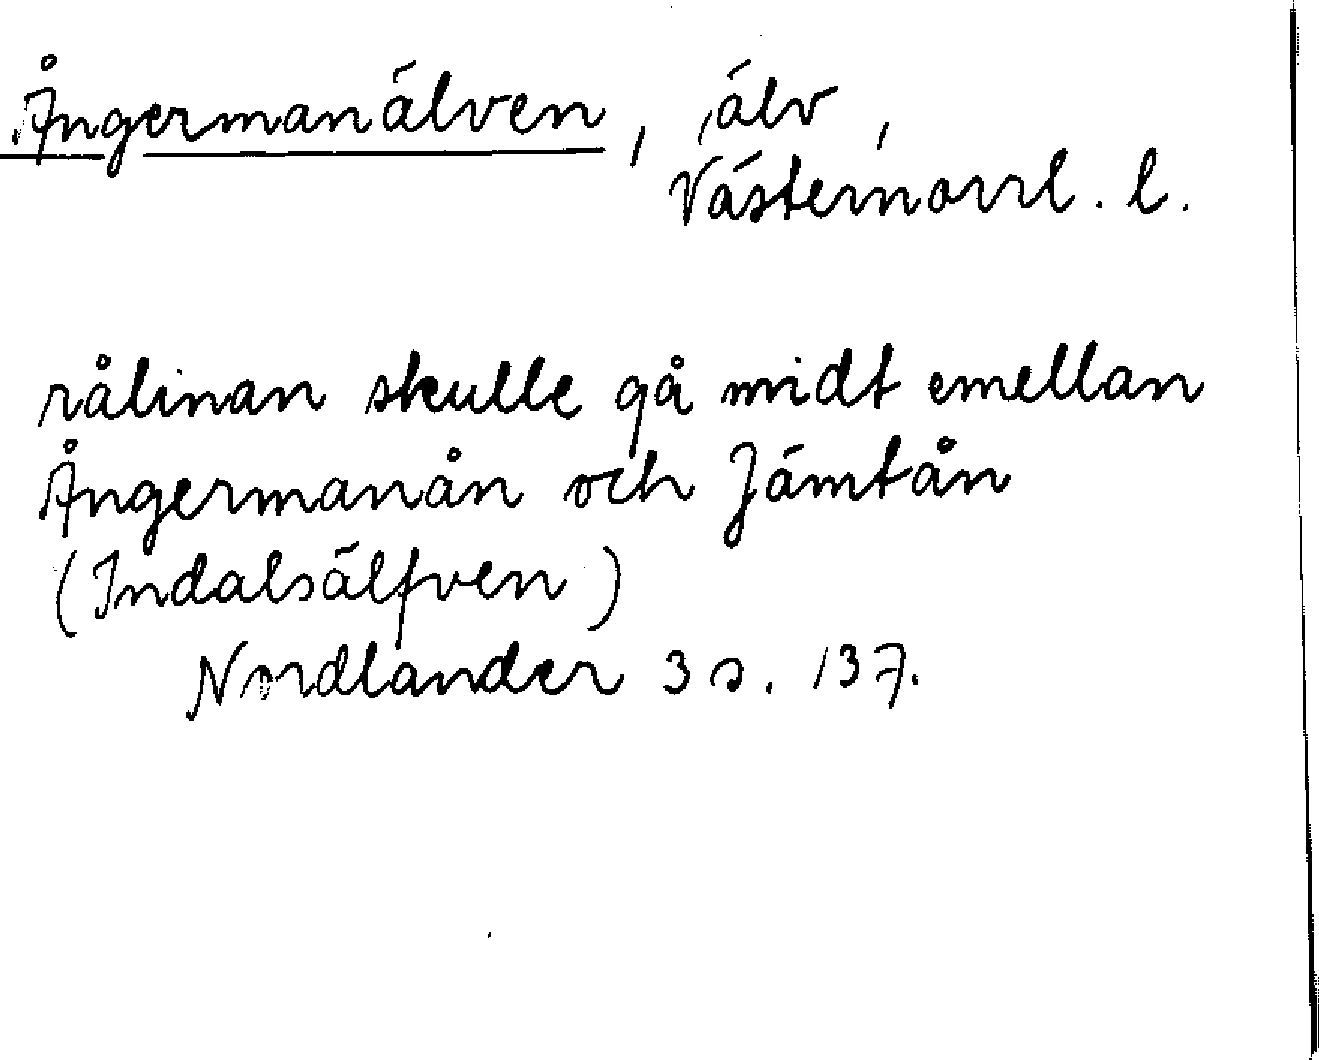 Ångermanälven, älv,
Västernorrl. l.
rålinan skulle gå midt emellan
Ångermanån och Jämtån
(Indalsälfven)
Nordlander 3 s. 137.